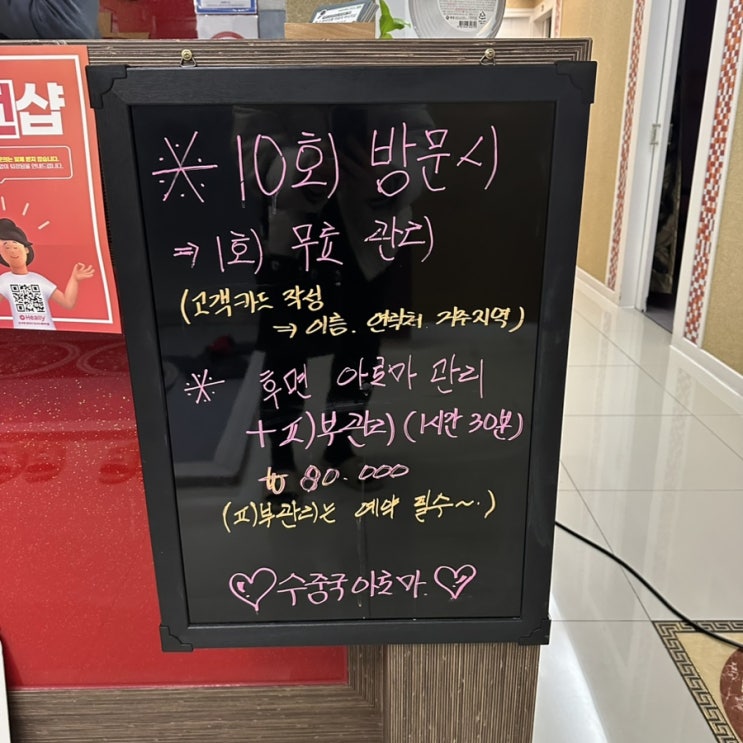 샵
※ 10회 방문시
⇒ 1회 무료 관리
(고객카드 작성
⇒ 이름. 연락처. 거주지역)
※ 후면 아로마 관리
+ 피부관리 (1시간 30분)
₩ 80.000
(피부관리는 예약 필수~.)
♡수중국아로마.♡